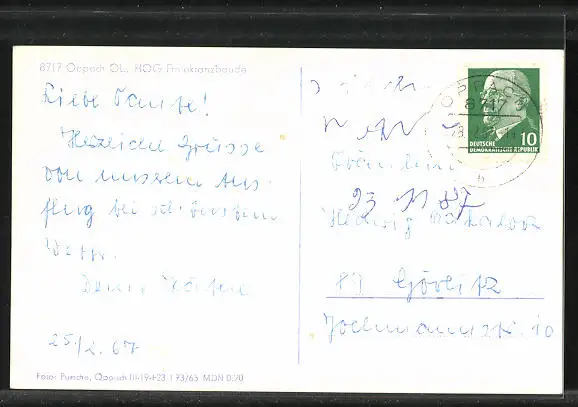 8717 Oppach OL., HOG Erntekranzbaude
Liebe Tante!
Herzliche Grüsse
von unserem Aus-
flug bei schönstem
Wetter.
Deine
25/2. 67
Foto: Pursche, Oppach III-19-123 I 93/65 MDN 0.20
OPPACH
8717
10
DEUTSCHE
DEMOKRATISCHE REPUBLIK
Fräulein
23 11 87
Hedwig
89 Görlitz
Jochmannstr. 10